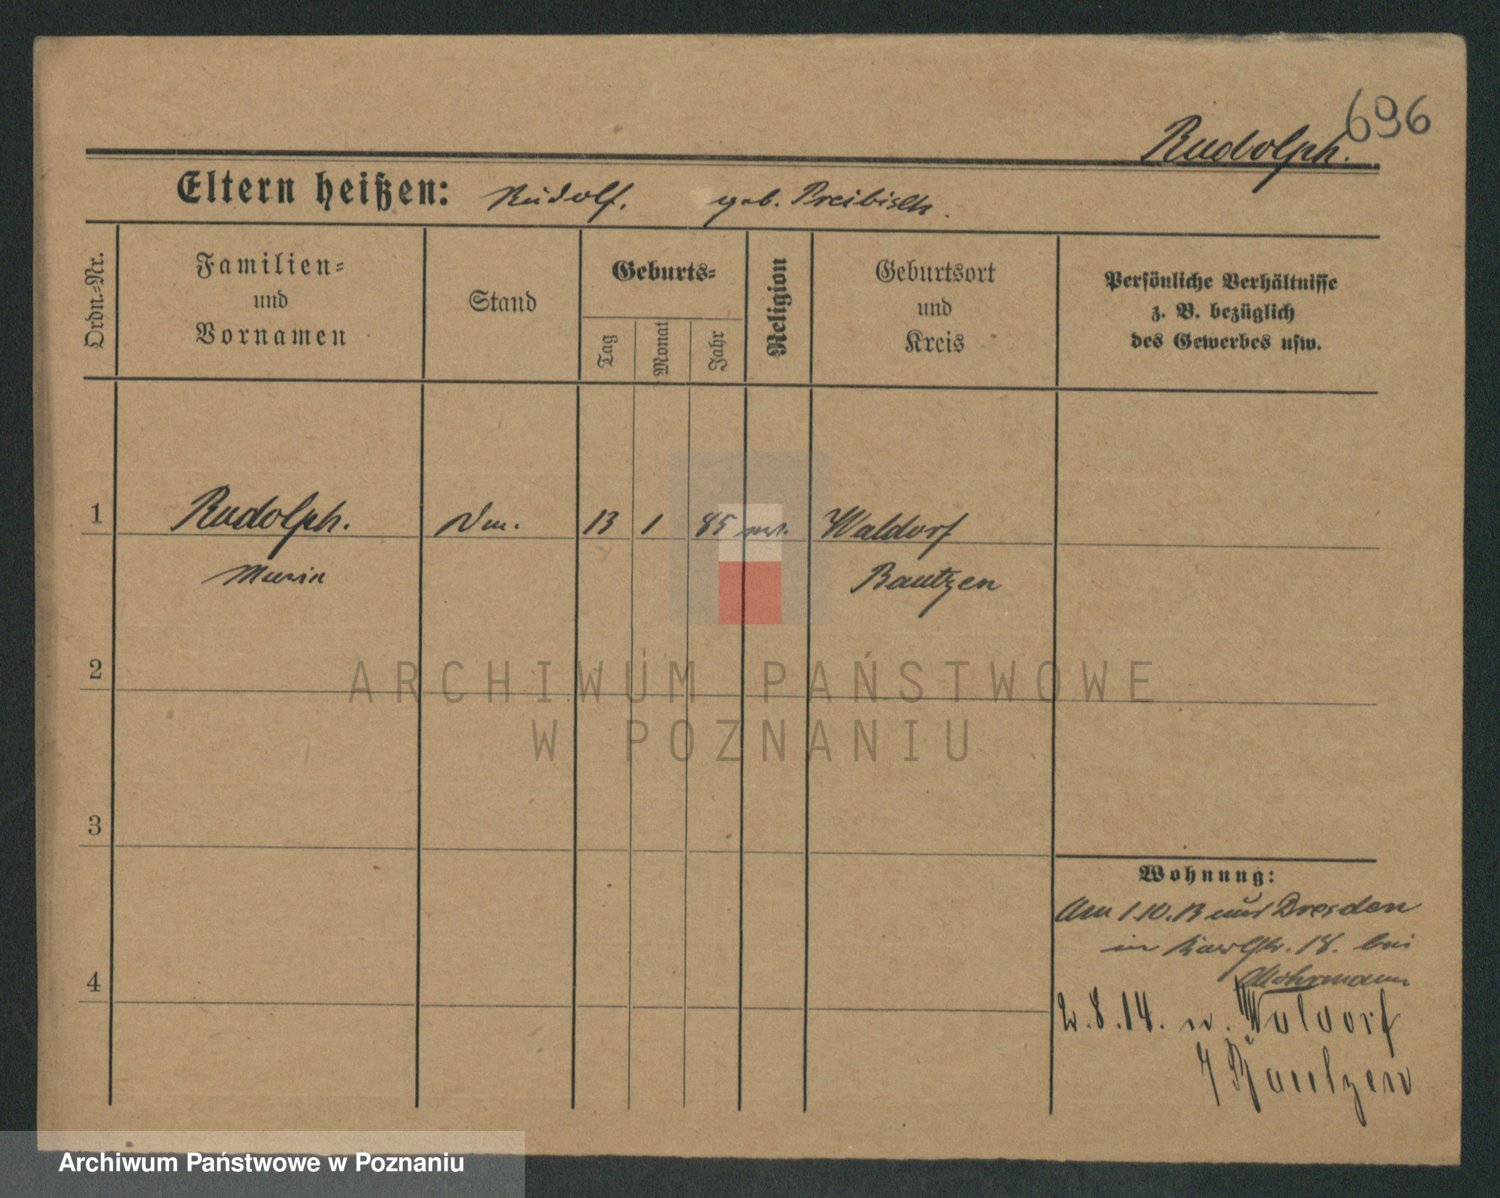 696
Rudolph.
Eltern heißen: Rudolf. geb. Preibisch.
Ordn.-Nr.
Familien- und Vornamen
Stand
Geburts-
Tag
Monat
Jahr
Religion
Geburtsort und Kreis
Persönliche Verhältnisse
z. B. bezüglich
des Gewerbes usw.
1 Rudolph. 13 1 85 Waldorf
Maria Bautzen
2
3
4
Wohnung:
Am 1.10.13 aus Dresden
in Karlstr. 18. bei
Mohrmann
2.8.14. n. Waldorf
Bautzen
ARCHIWUM PAŃSTWOWE
W POZNANIU
Archiwum Państwowe w Poznaniu